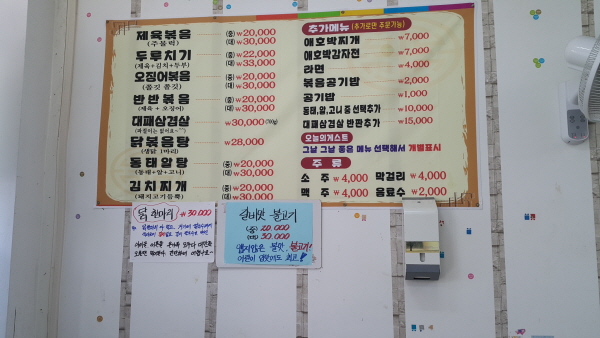 제육볶음 (중) ₩20,000
(주물럭) (대) ₩30,000
두루치기 (중) ₩22,000
(제육+김치+두부) (대) ₩33,000
오징어볶음 (중) ₩20,000
(쫄깃 쫄깃) (대) ₩30,000
반반볶음 (중) ₩20,000
(제육 + 오징어) (대) ₩30,000
대패삼겹살 ₩30,000
닭볶음탕 ₩28,000
(생닭 1마리)
동태알탕 (중) ₩20,000
(동태+알+고니) (대) ₩30,000
김치찌개 (중) ₩20,000
(돼지고기듬뿍) (대) ₩30,000
추가메뉴 (추가로만 주문가능)
애호박찌개 ₩7,000
애호박감자전 ₩7,000
라면 ₩4,000
볶음공기밥 ₩2,000
공기밥 ₩1,000
동태,알,고니 중 선택추가 ₩10,000
대패삼겹살 반판추가 ₩15,000
오늘의게스트
그날 그날 좋은 메뉴 선택해서 개별표시
주 류
소 주 ₩4,000 막걸리 ₩4,000
맥 주 ₩4,000 음료수 ₩2,000
닭 한마리 ₩30,000
갈비맛 불고기
(중) 20.000
(대) 30.000
맵지않은 불맛, 불고기!
어른이 입맛에도 최고!